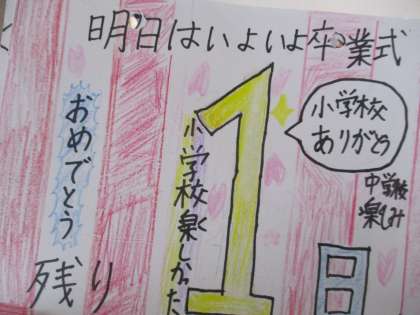 明日はいよいよ卒業式
おめでとう
残り
1
日
小学校楽しかった
小学校
ありがとう
中学校
楽しみ